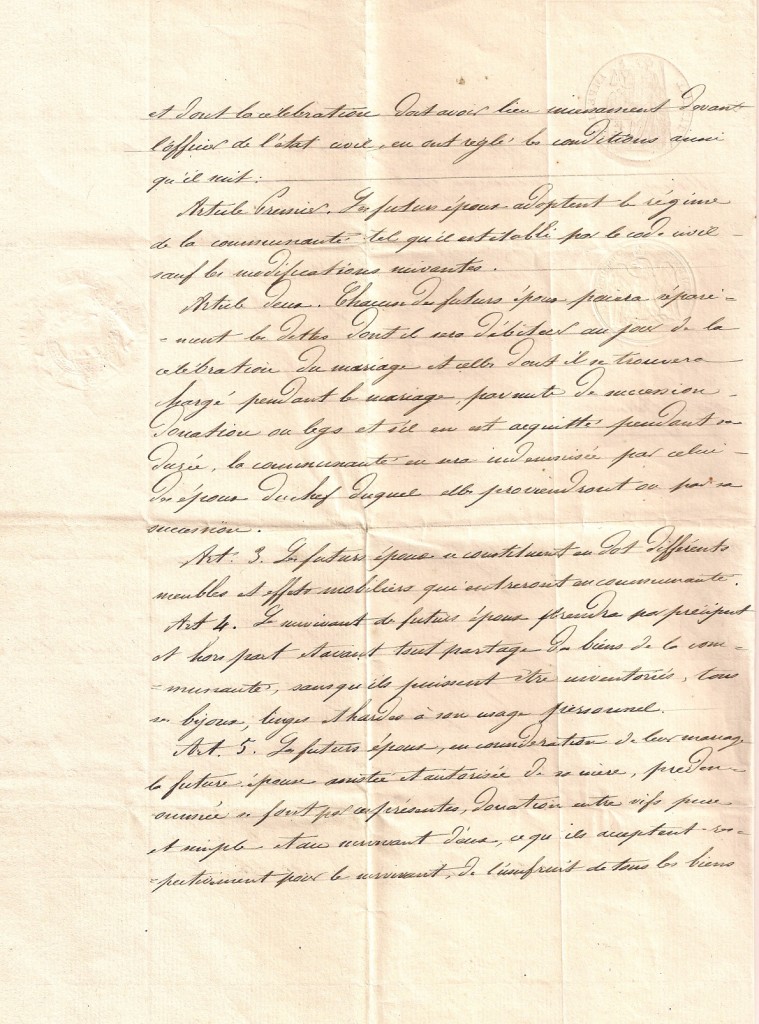 et dont la célébration doit avoir lieu incessament devant
l'officier de l'état civil, en ont réglé les conditions ainsi
qu'il suit :
Article Premier. Les futurs époux adoptent le régime
de la communauté tel qu'il est établi par le code civil -
sauf les modifications suivantes.
Article deux. Chacun des futurs époux paiera séparé =
= ment les dettes dont il sera débiteur au jour de la
célébration du mariage et celles dont il se trouvera
chargé pendant le mariage, par suite de succession
donation ou legs et s'il en est acquitté pendant sa
durée, la communauté en sera indemnisée par celui -
des époux du chef duquel elles proviendront ou par sa
succession.
Art. 3. Les futurs époux se constituent en dot différents
meubles et effets mobiliers qui entreront en communauté.
Art 4. Le survivant des futurs époux prendra par préciput
et hors part et avant tout partage des biens de la com =
= munauté, sans qu'ils puissent être inventoriés, tous
ses bijoux, linges et hardes à son usage personnel.
Art. 5. Les futurs époux, en considération de leur mariage
la future épouse assistée et autorisée de sa mère, préden =
ommée se font par ces présentes, donation entre vifs pure
et simple et au survivant d'eux, ce qu'ils acceptent res =
= pectivement pour le survivant, de l'usufruit de tous les biens